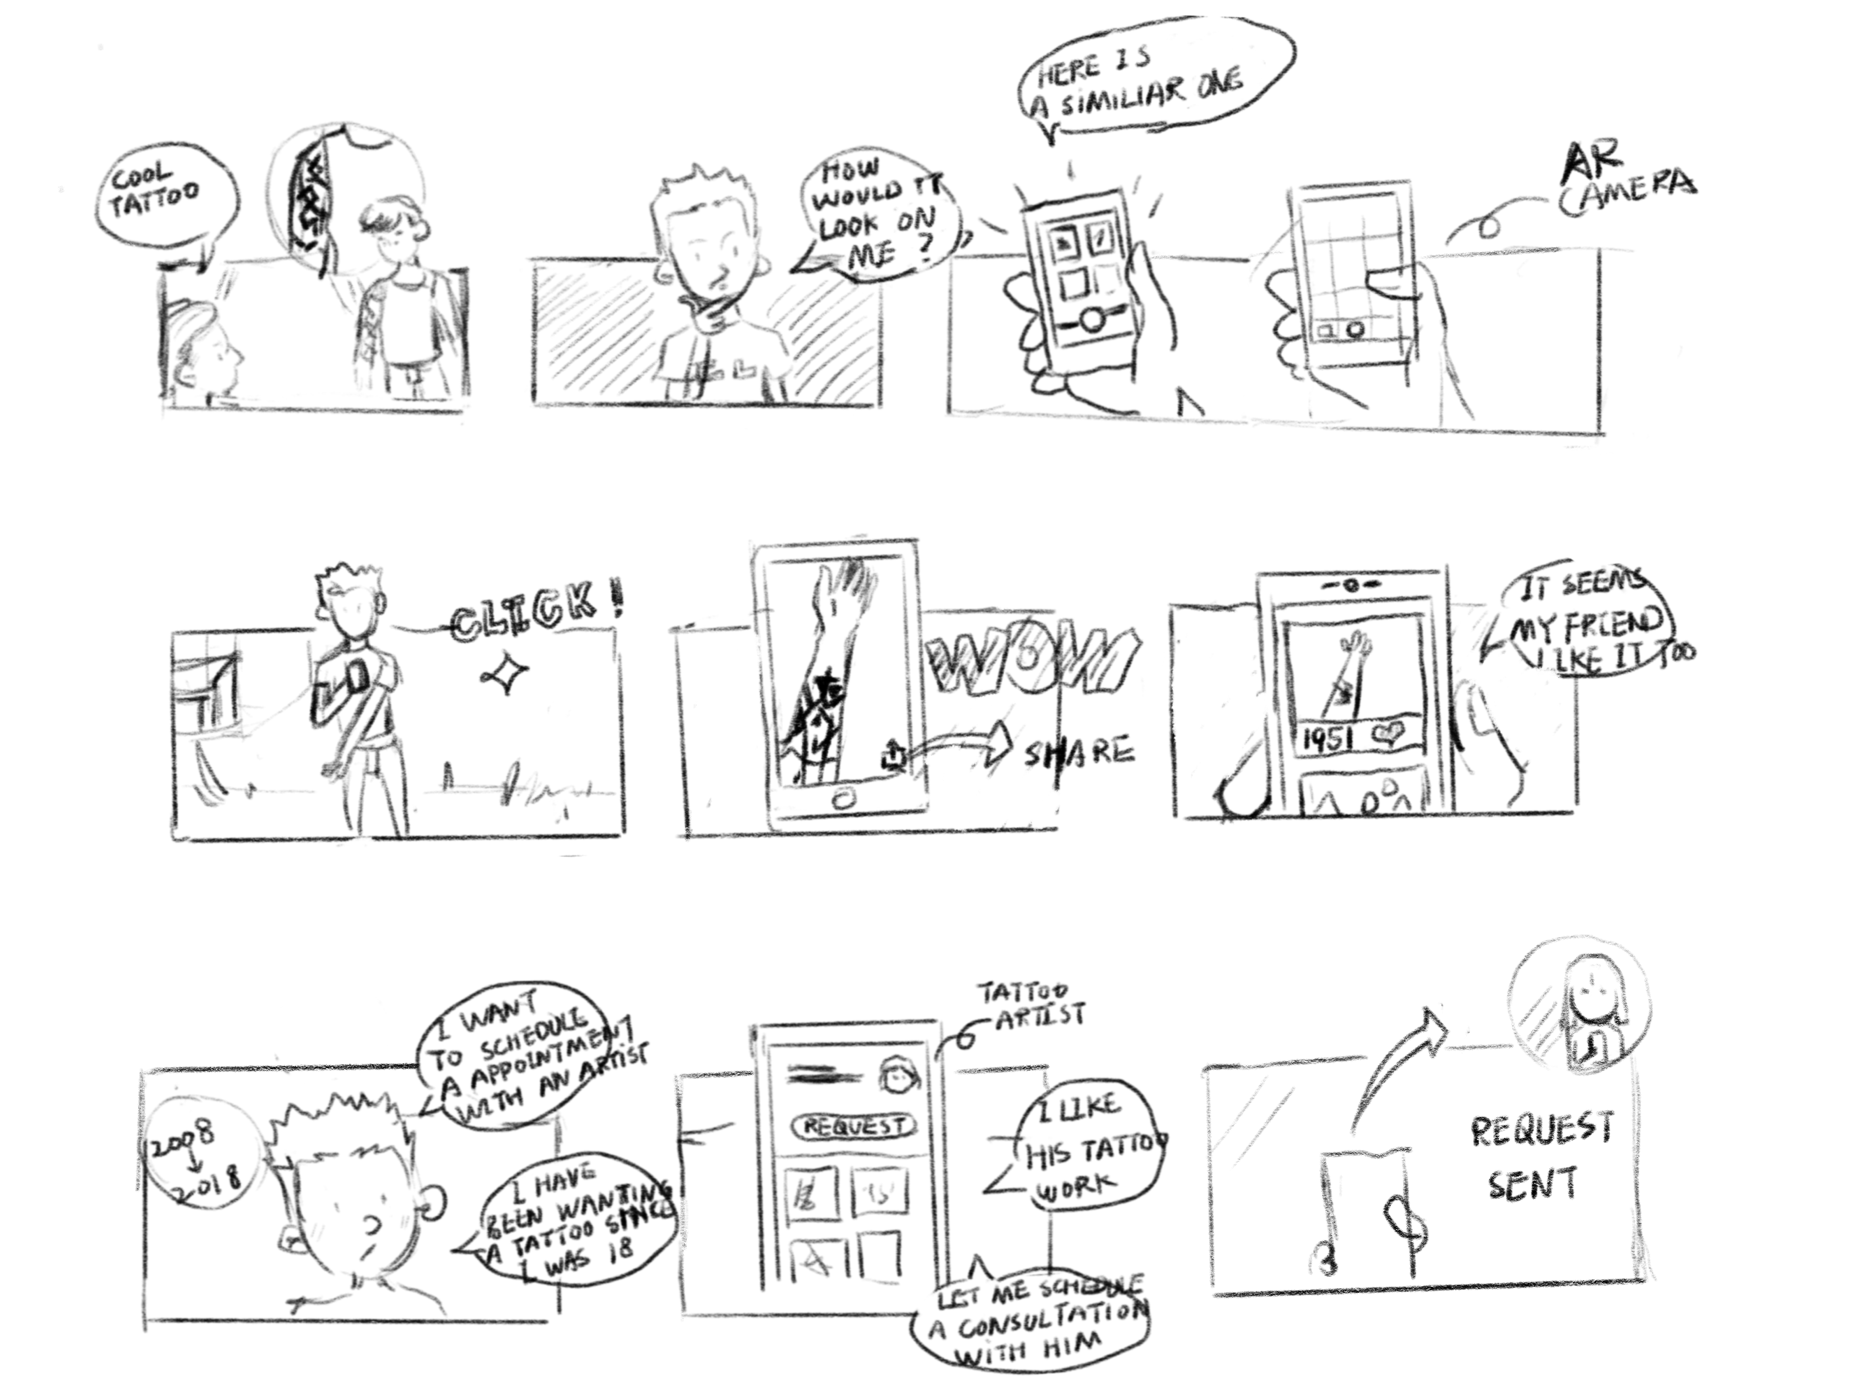 COOL
TATTOO
HOW
WOULD IT
LOOK ON
ME ?
HERE IS
A SIMILIAR ONE
AR
CAMERA
CLICK!
WOW
SHARE
1951
IT SEEMS
MY FRIEND
LIKE IT TOO
2008
2018
I WANT
TO SCHEDULE
A APPOINTMENT
WITH AN ARTIST
I HAVE
BEEN WANTING
A TATTOO SINCE
I WAS 18
TATTOO
ARTIST
REQUEST
I LIKE
HIS TATTOO
WORK
LET ME SCHEDULE
A CONSULTATION
WITH HIM
REQUEST
SENT